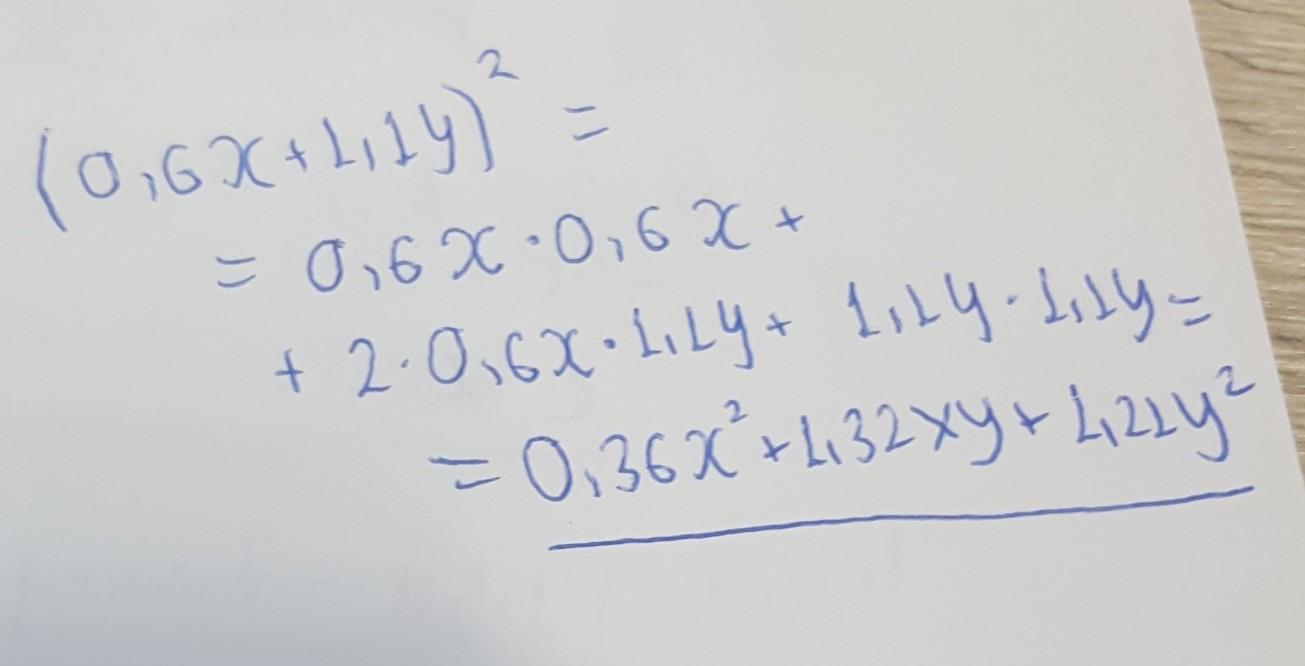 (0,6x+1,1y)² =
= 0,6x·0,6x+
+ 2·0,6x·1,1y+ 1,1y·1,1y=
= 0,36x²+1,32xy+1,21y²